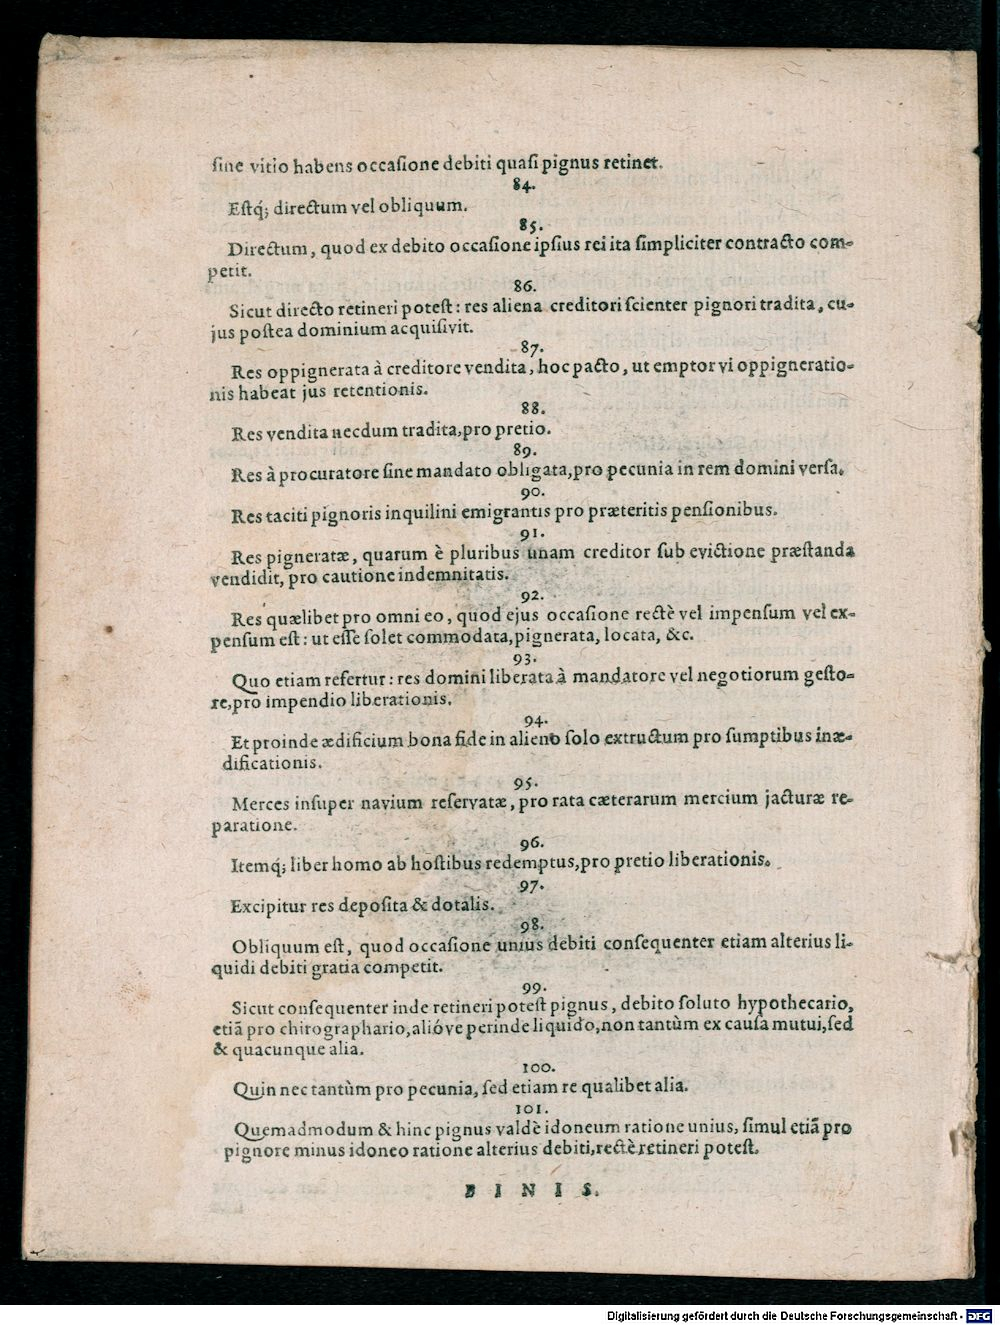 ſine vitio habens occaſione debiti quaſi pignus retinet.
84.
Eſtq́; directum vel obliquum.
85.
Directum, quod ex debito occaſione ipſius rei ita ſimpliciter contracto com-
petit.
86.
Sicut directo retineri poteſt: res aliena creditori ſcienter pignori tradita, cu-
jus poſtea dominium acquiſivit.
87.
Res oppignerata à creditore vendita, hoc pacto, ut emptor vi oppigneratio-
nis habeat jus retentionis.
88.
Res vendita necdum tradita, pro pretio.
89.
Res à procuratore ſine mandato obligata, pro pecunia in rem domini verſa.
90.
Res taciti pignoris inquilini emigrantis pro præteritis penſionibus.
91.
Res pigneratæ, quarum è pluribus unam creditor ſub evictione præſtanda
vendidit, pro cautione indemnitatis.
92.
Res quælibet pro omni eo, quod ejus occaſione rectè vel impenſum vel ex-
penſum eſt: ut eſſe ſolet commodata, pignerata, locata, &c.
93.
Quo etiam refertur: res domini liberata à mandatore vel negotiorum geſto-
re, pro impendio liberationis.
94.
Et proinde ædificium bona fide in alieno ſolo extructum pro ſumptibus inæ-
dificationis.
95.
Merces inſuper navium reſervatæ, pro rata cæterarum mercium jacturæ re-
paratione.
96.
Itemq́; liber homo ab hoſtibus redemptus, pro pretio liberationis.
97.
Excipitur res depoſita & dotalis.
98.
Obliquum eſt, quod occaſione unius debiti conſequenter etiam alterius li-
quidi debiti gratia competit.
99.
Sicut conſequenter inde retineri poteſt pignus, debito ſoluto hypothecario,
etiã pro chirographario, alióve perinde liquido, non tantùm ex cauſa mutui, ſed
& quacunque alia.
100.
Quin nec tantùm pro pecunia, ſed etiam re qualibet alia.
101.
Quemadmodum & hinc pignus valdè idoneum ratione unius, ſimul etiã pro
pignore minus idoneo ratione alterius debiti, rectè retineri poteſt.
FINIS.
Digitalisierung gefördert durch die Deutsche Forschungsgemeinschaft - DFG